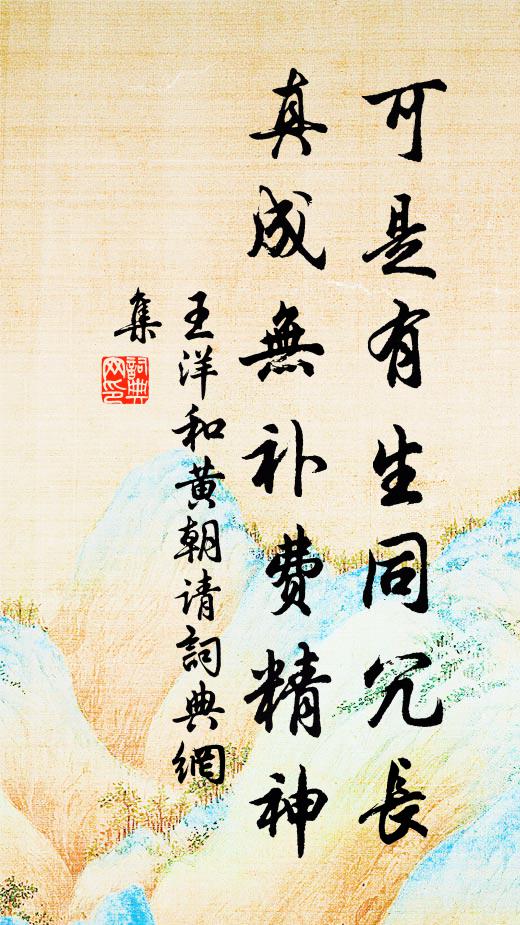 可是有生同冗長
真成無补费精神
王洋和黄朝请詞典網
集
詞典網印